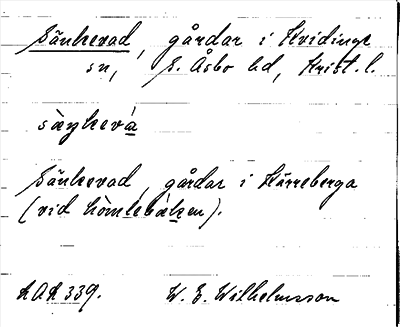 Sänkevad, gårdar i Kvidinge
sn, S. Åsbo hd, Krist. l.
sæŋkəvá
Sänkevad, gårdar i Härreberga
(vid hòmləbækən).
LAL 339. W. E. Wilhelmsson